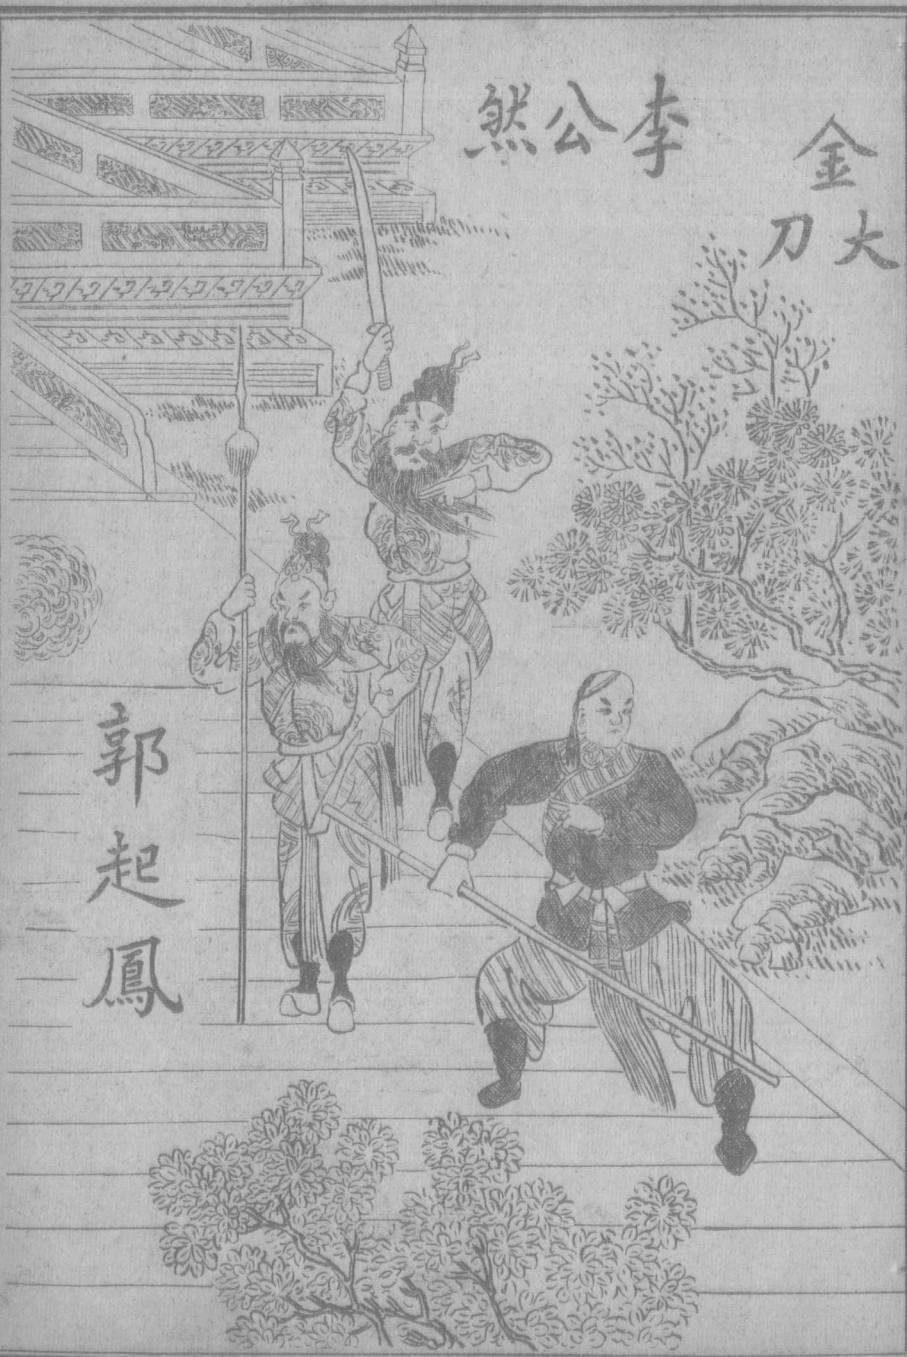 金大刀
李公然
郭起鳳